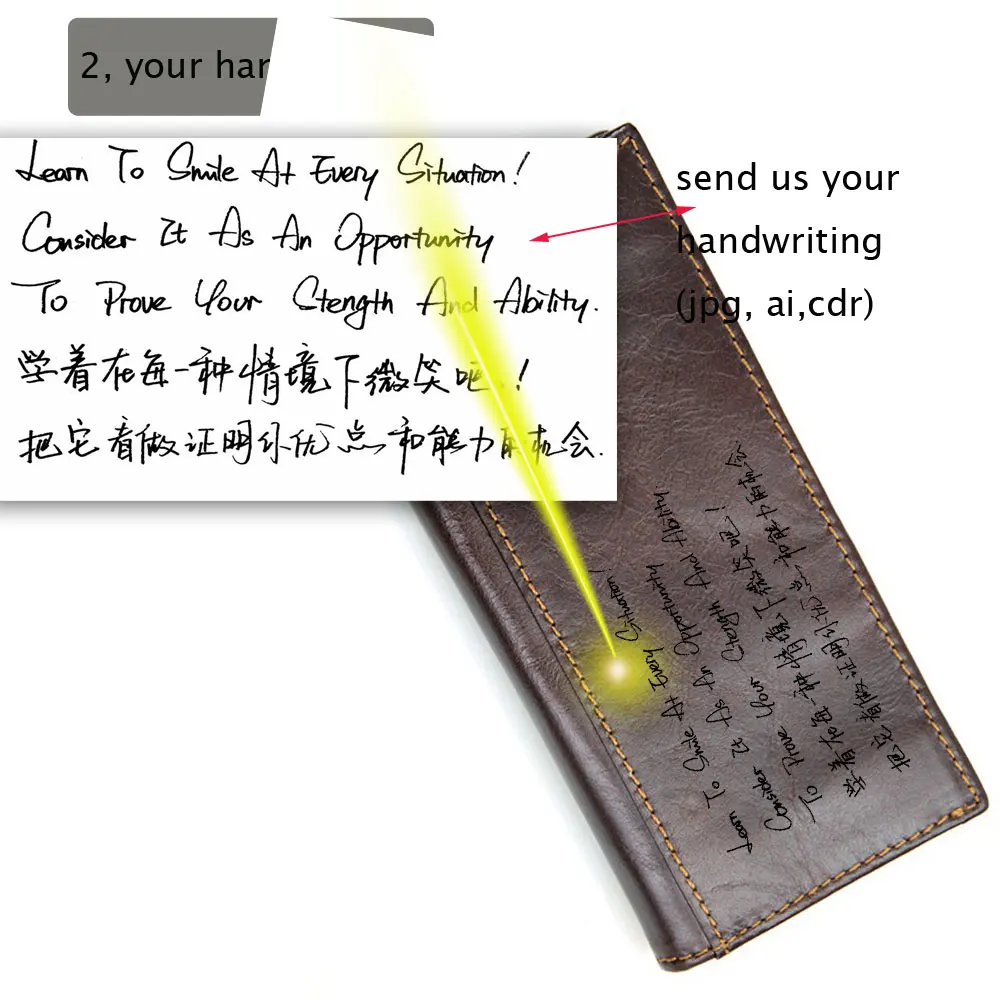 2, your har
Learn To Smile At Every Situation!
Consider It As An Opportunity
To Prove Your Stength And Ability.
学着在每一种情境下微笑吧!
把它看做证明你优点和能力的机会.
send us your
handwriting
(jpg, ai,cdr)
Learn To Smile At Every Situation!
Consider It As An Opportunity
To Prove Your Stength And Ability.
学着在每一种情境下微笑吧!
把它看做证明你优点和能力的机会